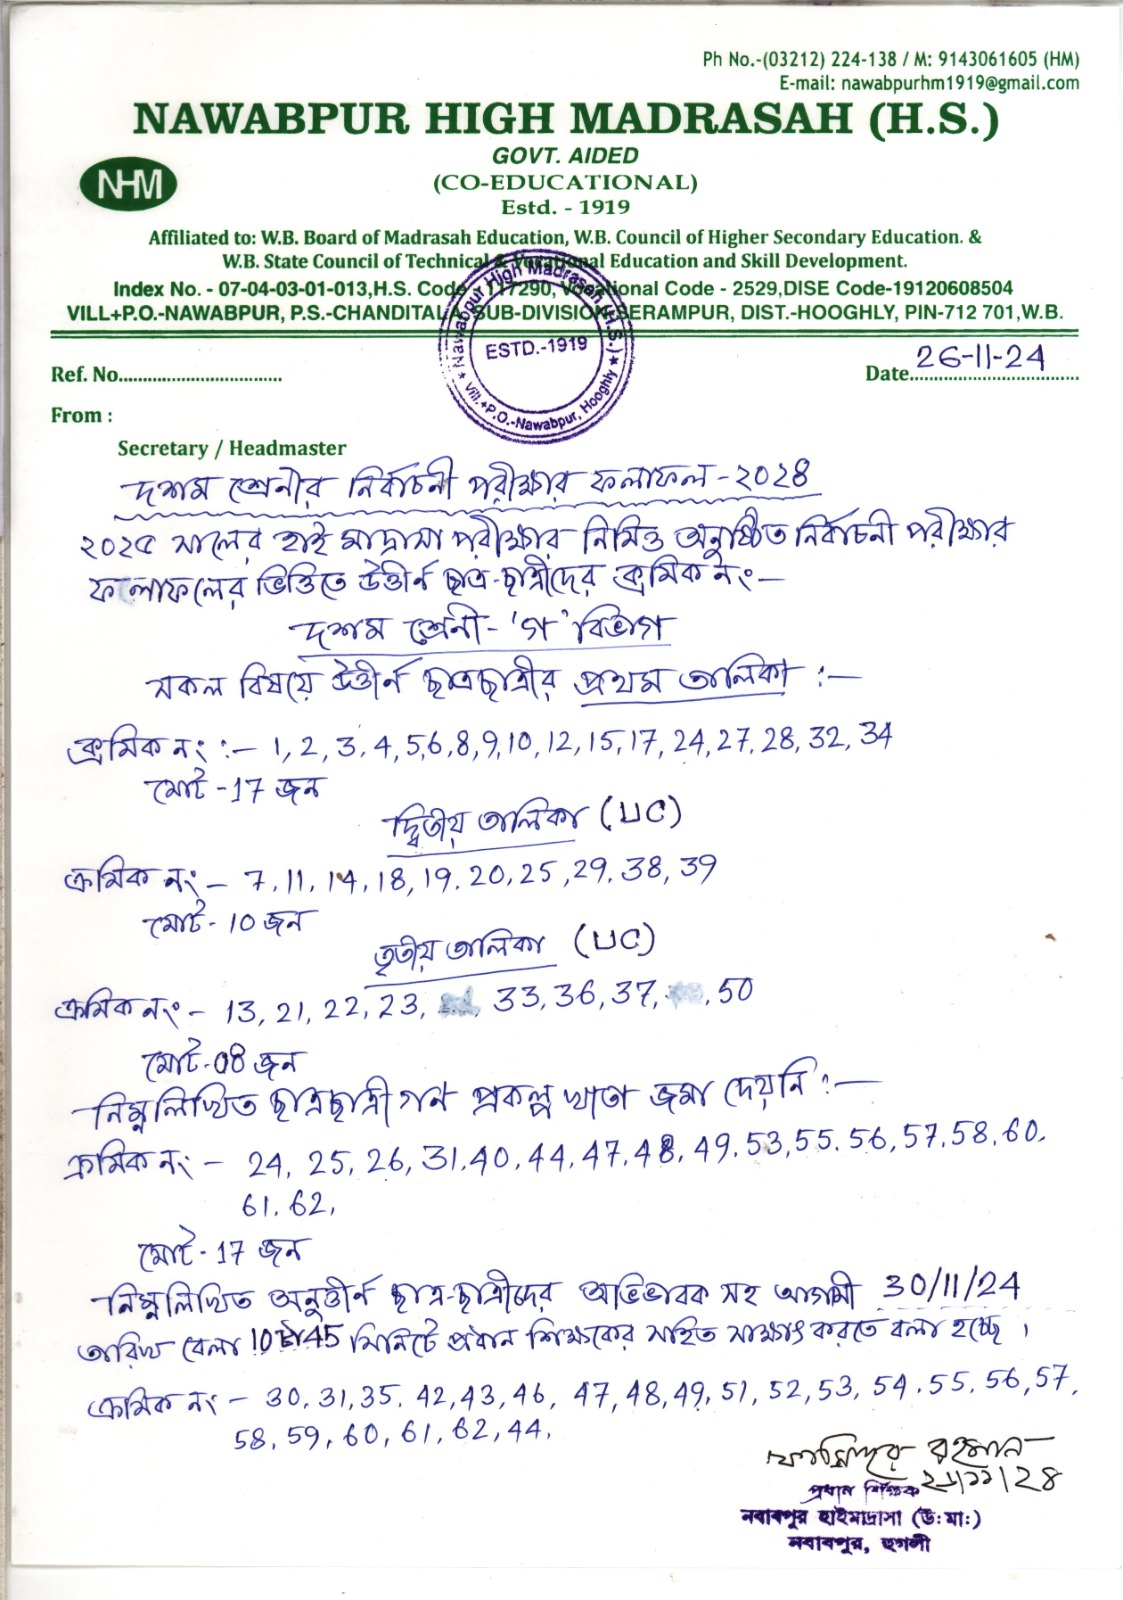 Ph No.-(03212) 224-138 / M: 9143061605 (HM)
E-mail: nawabpurhm1919@gmail.com
NAWABPUR HIGH MADRASAH (H.S.)
GOVT. AIDED
NHM
(CO-EDUCATIONAL)
Estd. - 1919
Affiliated to: W.B. Board of Madrasah Education, W.B. Council of Higher Secondary Education. &
W.B. State Council of Technical & Vocational Education and Skill Development.
Index No. - 07-04-03-01-013,H.S. Code 117290, Vocational Code - 2529,DISE Code-19120608504
VILL+P.O.-NAWABPUR, P.S.-CHANDITALA, SUB-DIVISION-SERAMPUR, DIST.-HOOGHLY, PIN-712 701,W.B.
Nawabpur High Madrasah (H.S.)
ESTD.-1919
Vill.+P.O.-Nawabpur, Hooghly
Ref. No................................
Date 26-11-24
From :
Secretary / Headmaster
দশম শ্রেনীর নির্বাচনী পরীক্ষার ফলাফল - ২০২৪
২০২৫ সালের হাই মাদ্রাসা পরীক্ষার নিমিত্ত অনুষ্ঠিত নির্বাচনী পরীক্ষার
ফলাফলের ভিত্তিতে উত্তীর্ন ছাত্র-ছাত্রীদের ক্রমিক নং —
দশম শ্রেনী - 'গ' বিভাগ
সকল বিষয়ে উত্তীর্ন ছাত্রছাত্রীর প্রথম তালিকা :—
ক্রমিক নং :— 1, 2, 3, 4, 5, 6, 8, 9, 10, 12, 15, 17, 24, 27, 28, 32, 34
মোট - 17 জন
দ্বিতীয় তালিকা (UC)
ক্রমিক নং — 7, 11, 14, 18, 19. 20, 25, 29. 38, 39
মোট - 10 জন
তৃতীয় তালিকা (UC)
ক্রমিক নং - 13, 21, 22, 23, 33, 36, 37, 50
মোট - 08 জন
নিম্নলিখিত ছাত্রছাত্রী গন প্রকল্প খাতা জমা দেয়নি :—
ক্রমিক নং — 24, 25, 26, 31. 40, 44, 47. 48, 49. 53, 55. 56, 57. 58. 60.
61. 62,
মোট - 17 জন
নিম্নলিখিত অনুত্তীর্ন ছাত্র-ছাত্রীদের অভিভাবক সহ আগামী 30/11/24
তারিখ বেলা 10 টা 45 মিনিটে প্রধান শিক্ষকের সহিত সাক্ষাৎ করতে বলা হচ্ছে ।
ক্রমিক নং - 30, 31, 35. 42, 43, 46, 47, 48, 49, 51, 52, 53, 54. 55. 56, 57,
58, 59, 60, 61, 62, 44,
রহমান
২৬/১১/২৪
প্রধান শিক্ষক
নবাবপুর হাইমাদ্রাসা (উঃ মাঃ)
নবাবপুর, হুগলী